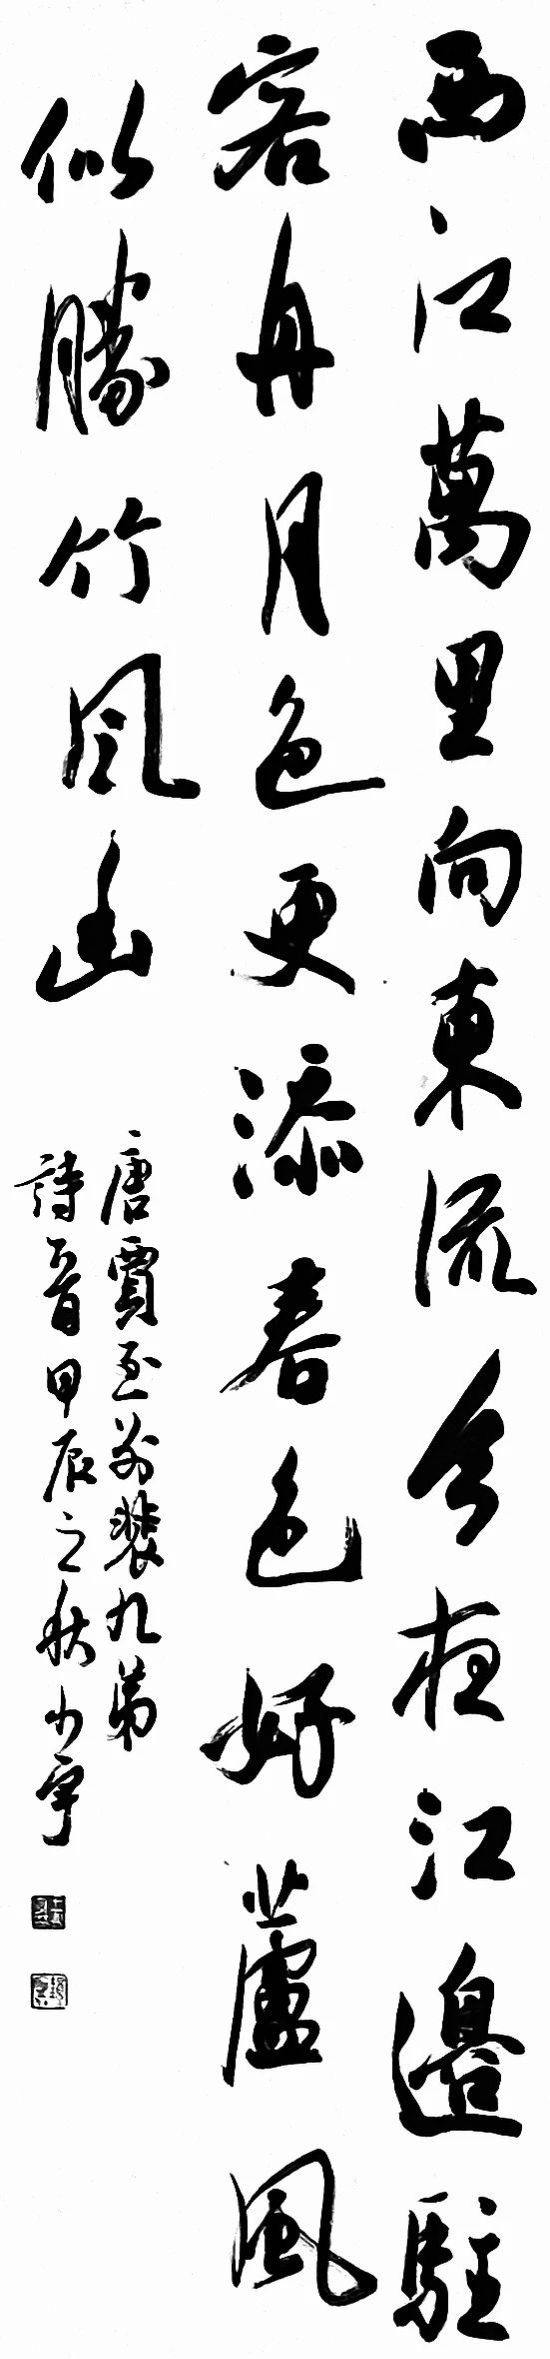 西江萬里向東流今夜江邊駐
客舟月色更添春色好蘆風
似勝竹風幽
唐賈至別裴九弟
詩首甲辰之秋小宇